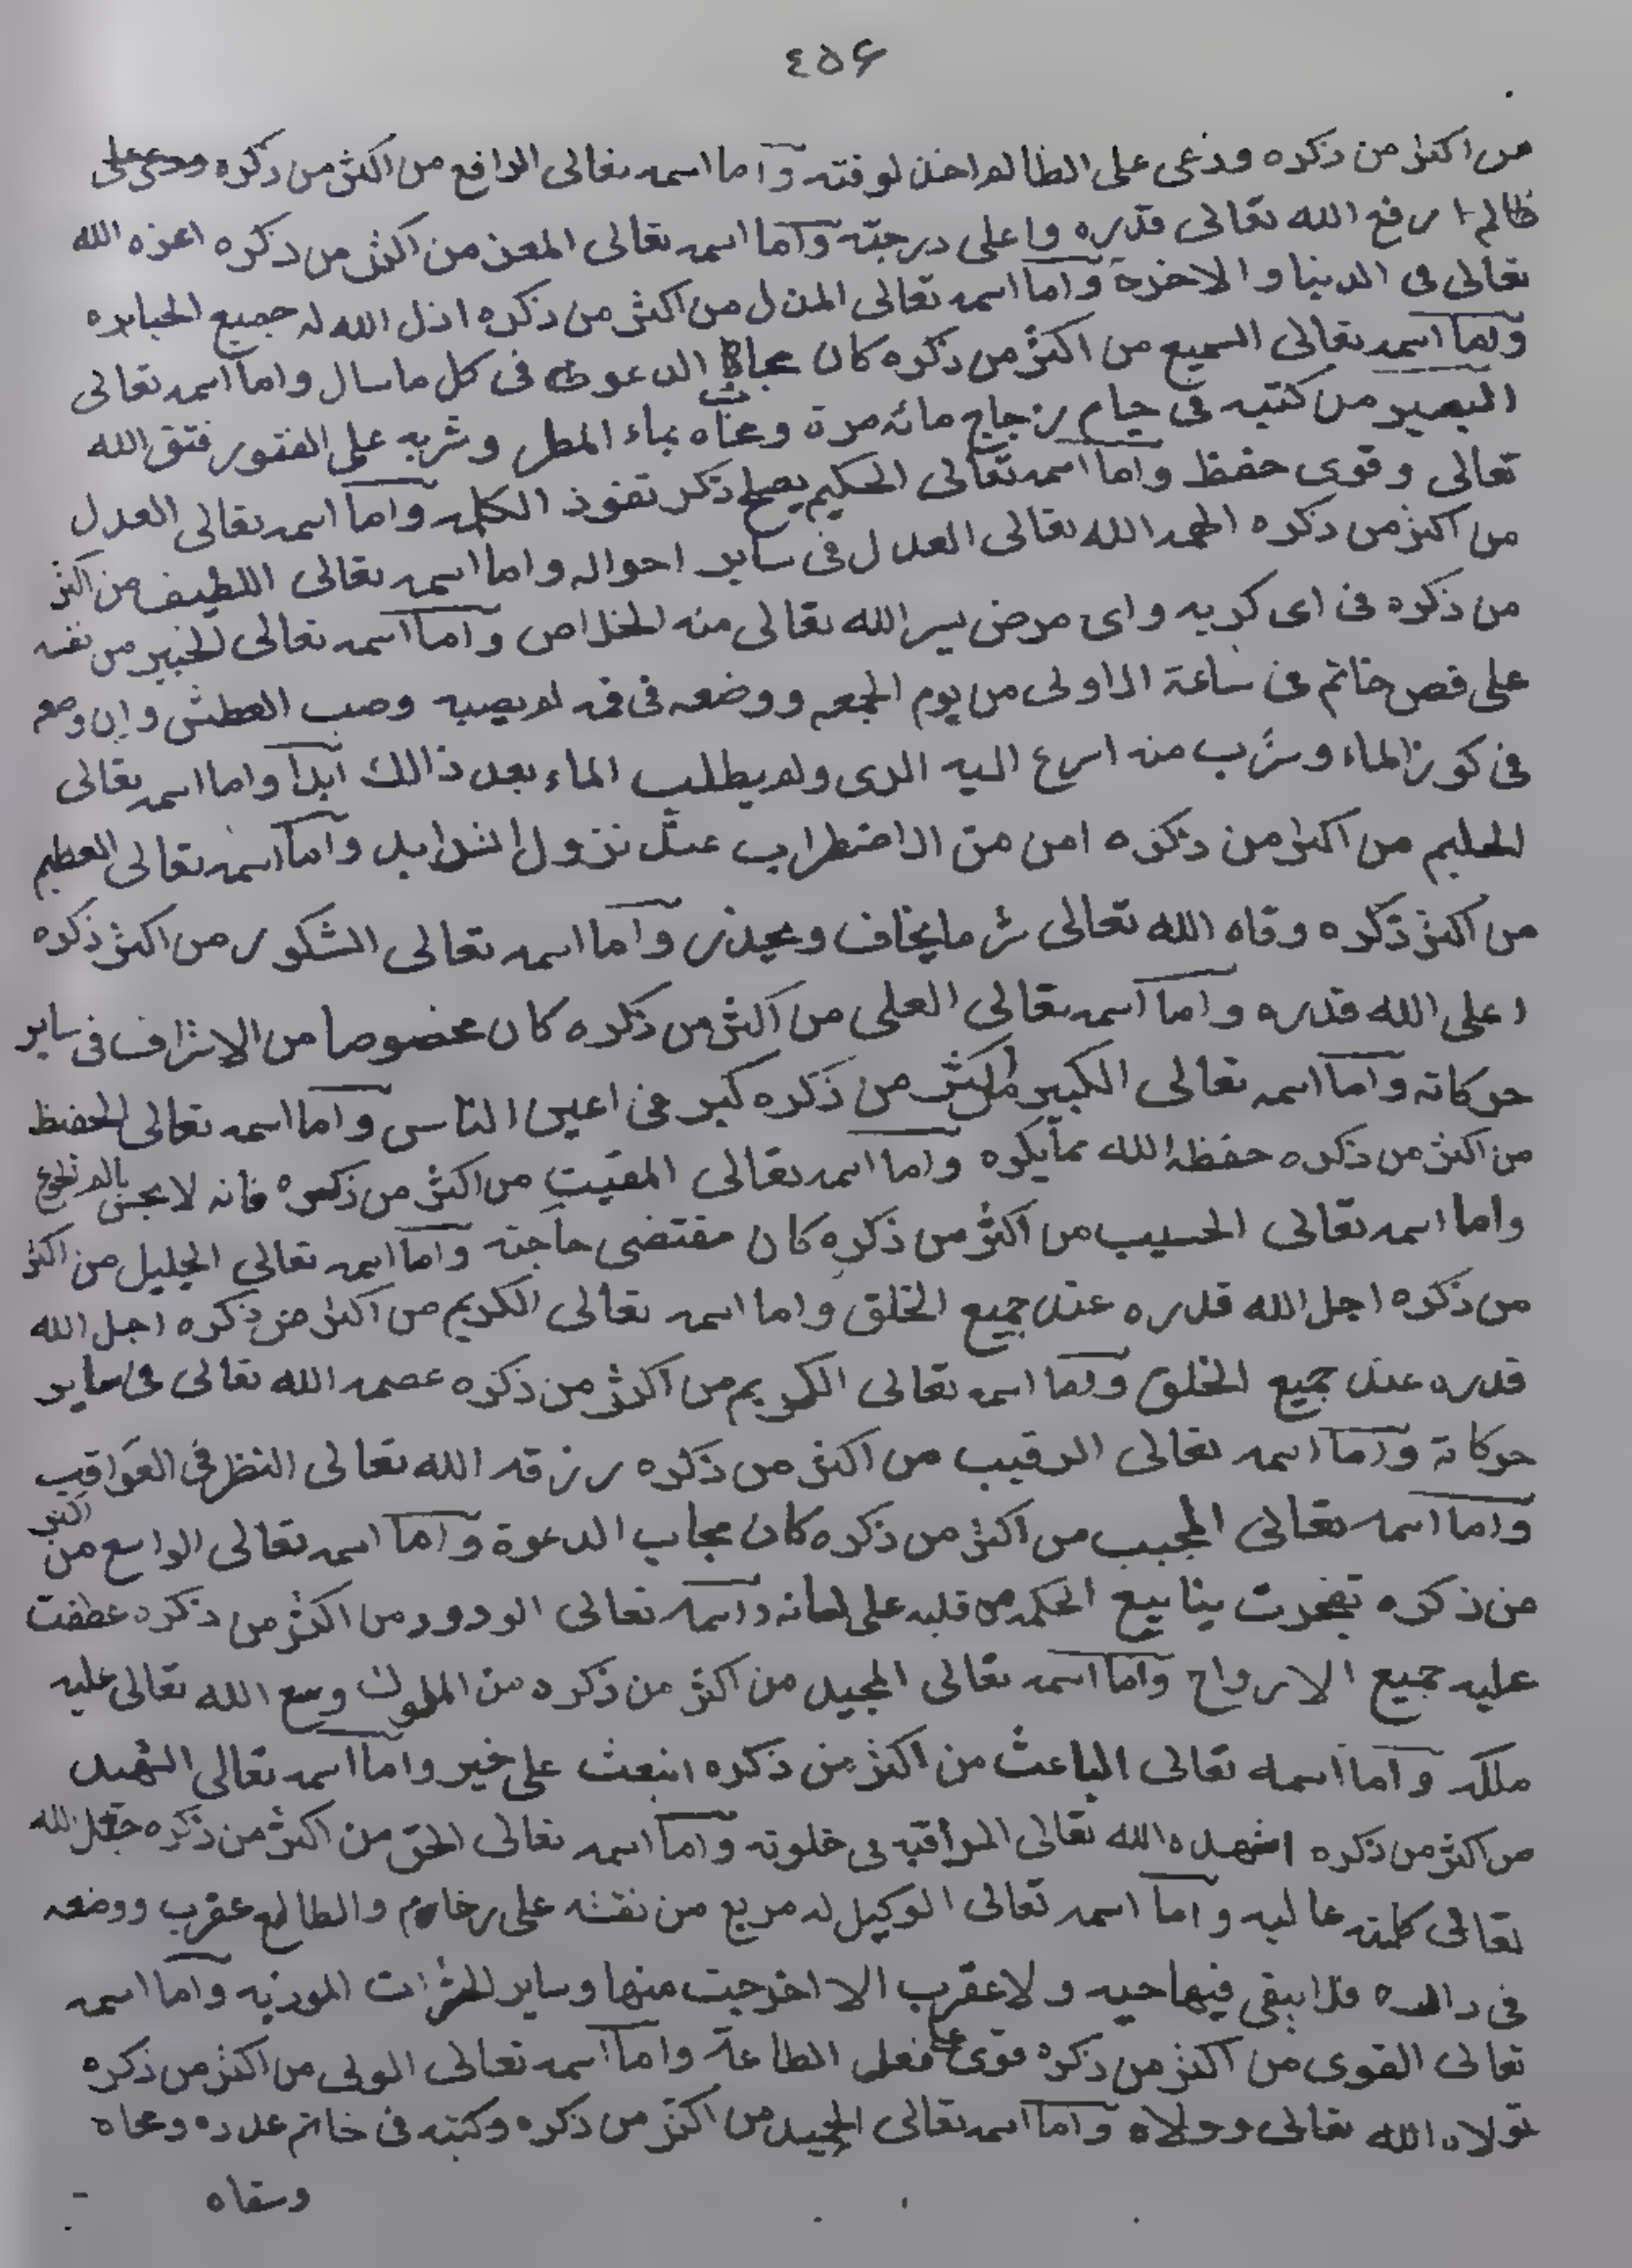 ٤٥۶
من اكثر من ذكره ودعى على الظالم اخذ لوقته واما اسمه تعالى الرافع من اكثر من ذكره ودعى على
ظالم ا رفع الله تعالى قدره واعلى درجته واما اسمه تعالى المعز من اكثر من ذكره اعزه الله
تعالى فى الدنيا والاخرة واما اسمه تعالى المذل من اكثر من ذكره اذل الله له جميع الجبابره
واما اسمه تعالى السميع من اكثر من ذكره كان مجاب الدعوة فى كل ما سال واما اسمه تعالى
البصير من كتبه فى جام زجاج مائه مرة ومحاه بماء المطر وشربه على الفتور فتق الله
تعالى وقوى حفظ واما اسمه تعالى الحكيم يصلح ذكر نفوذ الكلمه واما اسمه تعالى العدل
من اكثر من ذكره الهمه الله تعالى العدل فى ساير احواله واما اسمه تعالى اللطيف من اكثر
من ذكره فى اى كربه واى مرض يسر الله تعالى منه الخلاص واما اسمه تعالى الخبير من نقشه
على فص خاتم فى ساعة الاولى من يوم الجمعه ووضعه فى فمه لم يصيبه وصب العطش وإن وضعه
فى كوز الماء وشرب منه اسرع اليه الرى ولم يطلب الماء بعد ذالك ابدا واما اسمه تعالى
الحليم من اكثر من ذكره امن من الاضطراب عند نزول الشدايد واما اسمه تعالى العظيم
من اكثر ذكره وقاه الله تعالى شر ما يخاف ويحيذر واما اسمه تعالى الشكور من اكثر ذكره
اعلى الله قدره واما اسمه تعالى العلى من اكثر من ذكره كان مخصوصا من الاشراف فى ساير
حركاته واما اسمه تعالى الكبير من اكثر من ذكره كبر فى اعين الناس واما اسمه تعالى الحفيظ
من اكثر من ذكره حفظه الله مما يكره واما اسمه تعالى المقيت من اكثر من ذكره فانه لا يحس بالم الجوع
واما اسمه تعالى الحسيب من اكثر من ذكره كان مقتضى حاجته واما اسمه تعالى الجليل من اكثر
من ذكره اجل الله قدره عند جميع الخلق واما اسمه تعالى الكريم من اكثر من ذكره اجل الله
قدره عند جميع الخلق واما اسمه تعالى الكريم من اكثر من ذكره عصمه الله تعالى فى ساير
حركاته واما اسمه تعالى الرقيب من اكثر من ذكره رزقه الله تعالى النظر فى العواقب
واما اسمه تعالى المجيب من اكثر من ذكره كان مجاب الدعوة واما اسمه تعالى الواسع من اكثر
من ذكره تفجرت ينابيع الحكمه من قلبه على لسانه واسمه تعالى الودود من اكثر من ذكره عطفت
عليه جميع الارواح واما اسمه تعالى المجيد من اكثر من ذكره من الملوك وسع الله تعالى عليه
ملكه واما اسمه تعالى الباعث من اكثر من ذكره انبعث على خير واما اسمه تعالى الشهيد
من اكثر من ذكره اشهده الله تعالى المراقبه فى خلوته واما اسمه تعالى الحق من اكثر من ذكره جعل الله
تعالى كلمته عاليه واما اسمه تعالى الوكيل له مربع من نقشه على رخام والطالع عقرب ووضعه
فى داره فلا يبقى فيها حيه ولا عقرب الا اخرجت منها وساير الحشرات الموزيه واما اسمه
تعالى القوى من اكثر من ذكره قوى على فعل الطاعة واما اسمه تعالى الولى من اكثر من ذكره
تولاه الله تعالى وولاه واما اسمه تعالى الحميد من اكثر من ذكره وكتبه فى خاتم عدده ومحاه
وسقاه